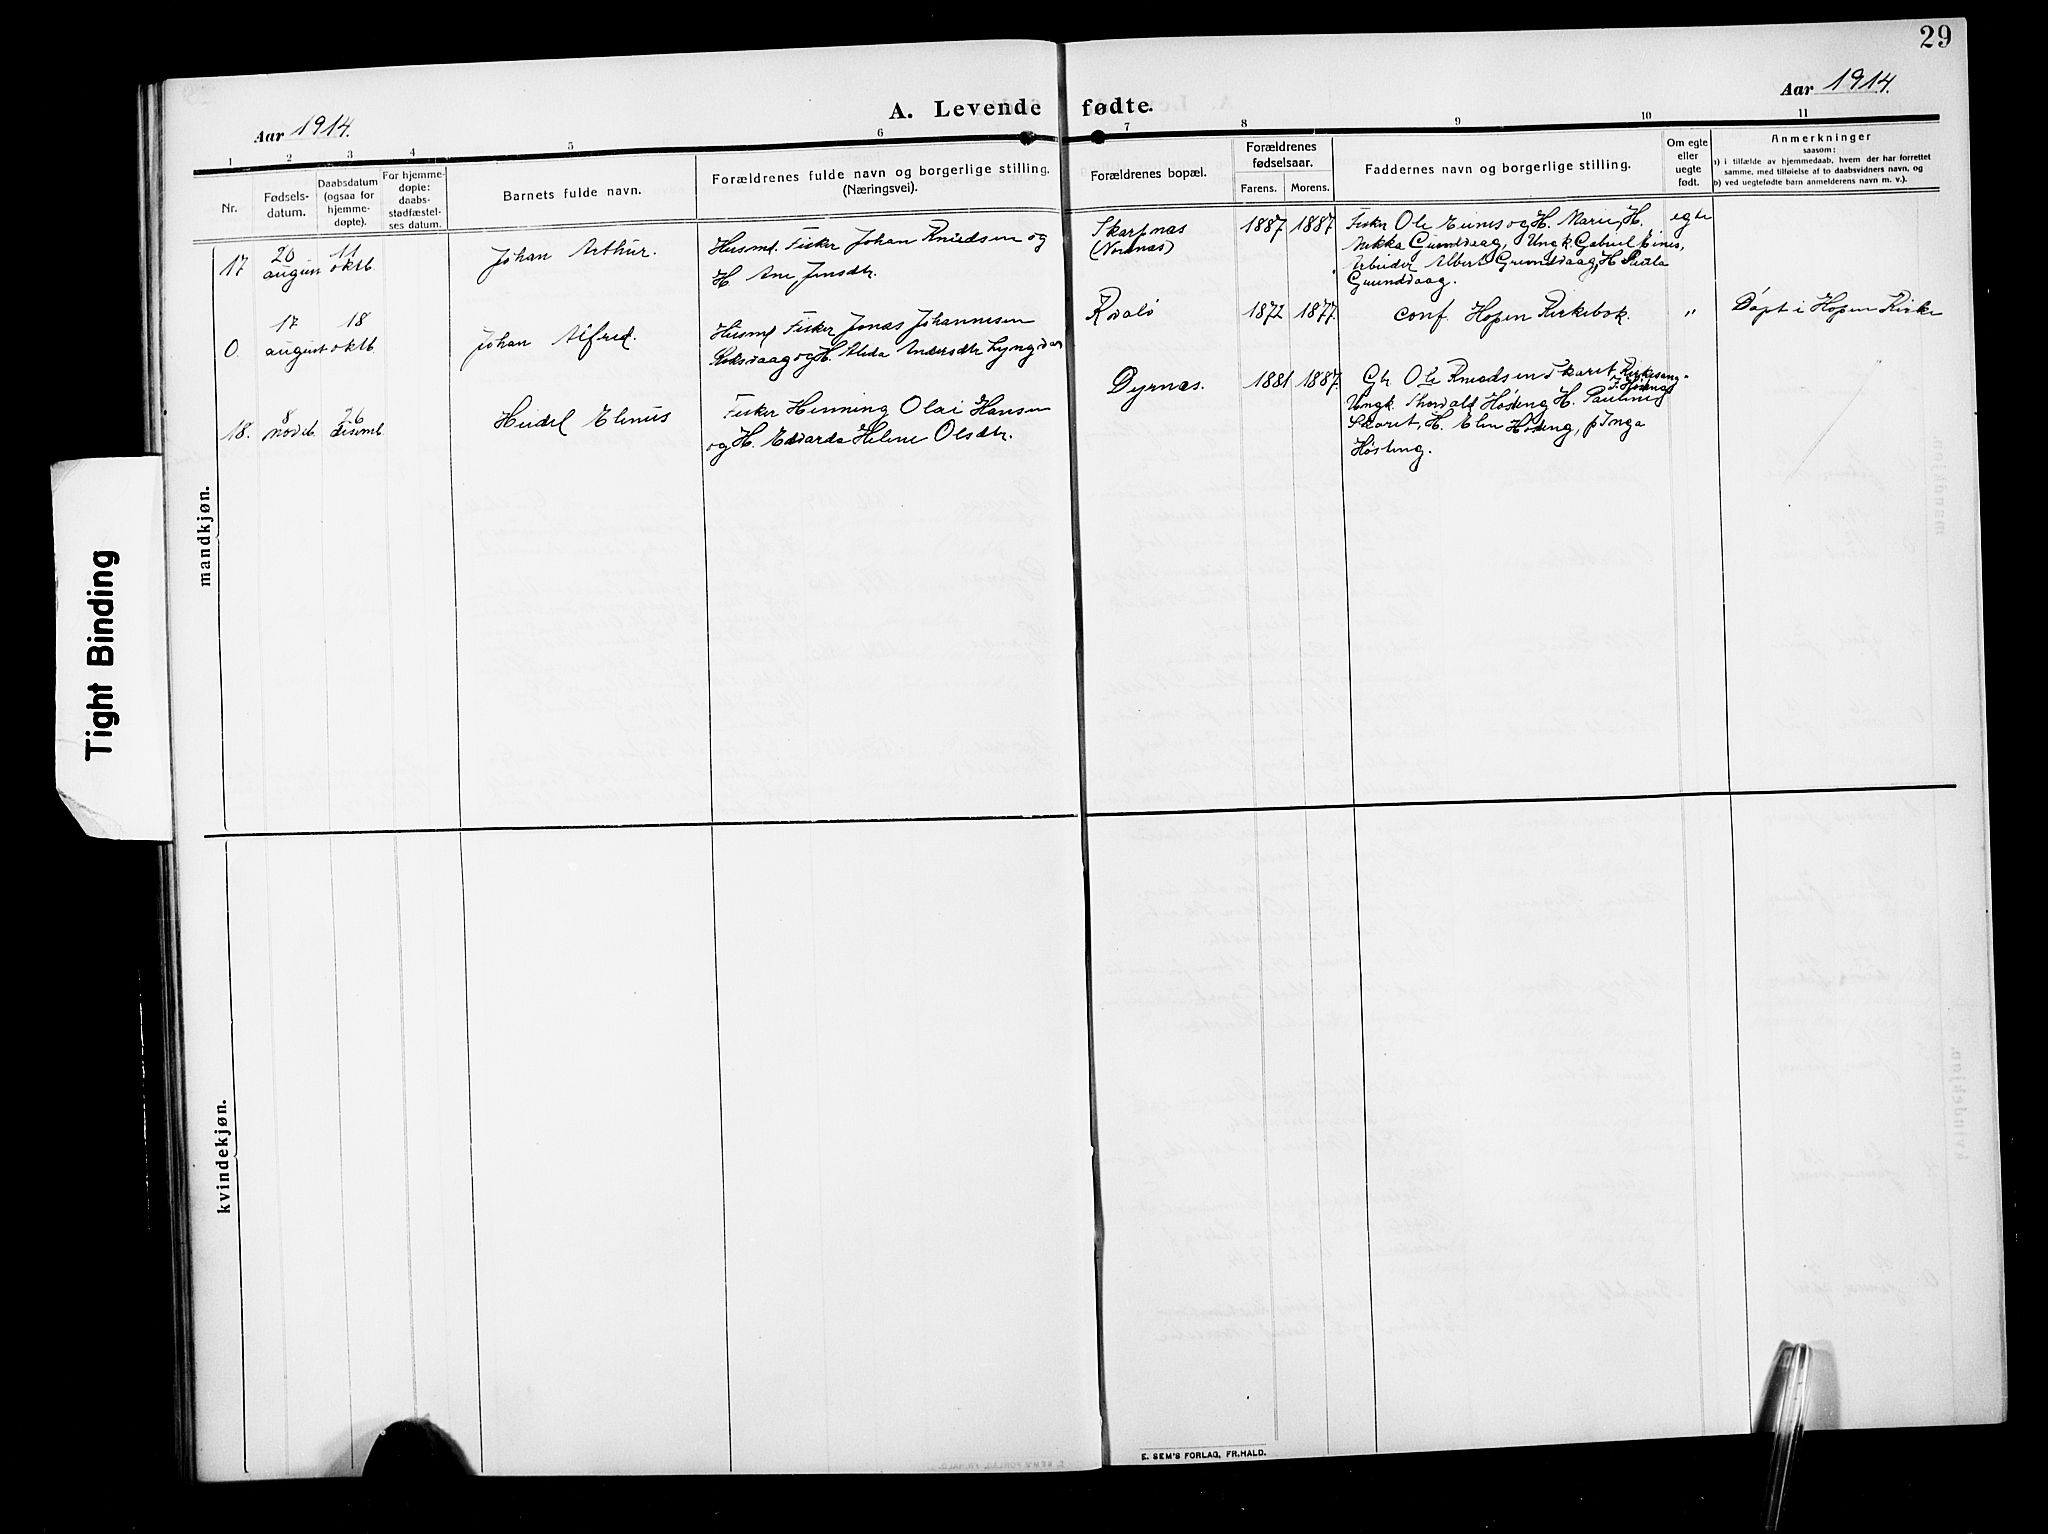 29
Aar 1914.
A. Levende fødte.
Aar 1914.
1 2 3 4 5 6 7 8 9 10 11
Nr.
Fødsels-
datum.
Daabsdatum
(ogsaa for
hjemme-
døpte).
For hjemme-
døpte:
daabs-
stadfæstel-
ses datum.
Barnets fulde navn.
Forældrenes fulde navn og borgerlige stilling.
(Næringsvei).
Forældrenes bopæl.
Forældrenes
fødselsaar.
Farens. Morens.
Faddernes navn og borgerlige stilling.
Om egte
eller
uegte
født.
Anmerkninger
saasom:
a) i tilfælde av hjemmedaab, hvem der har forrettet
samme, med tilføielse af to daabsvidners navn, og
b) ved uegtefødte barn anmelderens navn m. v.).
mandkjøn.
17
20
august
11
oktb.
Johan Arthur.
Husmd. Fisker Johan Knudsen og
H. Ane Jensdtr.
Skarpnas
(Nordnas)
1887 1887
Fisker Ole Eines og H. Marie, H.
Nekka Grunddaag, Ungk. Gabriel Eines,
Arbeider Albert Grunddaag, H.
Grunddaag.
egte
0.
17
august
18
oktb.
Johan Alfred.
Husmd Fisker Jonas Johannesen
og H. Alida Andersdtr Lyng
1872 1877
conf. Hopen Kirkebok.
"
Døpt i Hopen Kirke
18.
8
novb.
26
desemb.
Heidel Elenus
Fisker Henning Olai Hansen
og H. Edvarda Helene Olsdtr.
Dyrnæs.
1881 1887
Gb. Ole Knudsen Skaret, Kirkesang.
Ungk. Thorvald Høsteng, H. Pauline
Skaret, H. Elen Høsteng, p Inga
Høsteng.
kvindekjøn.
E. SEM'S FORLAG, FR.HALD.
Tight Binding